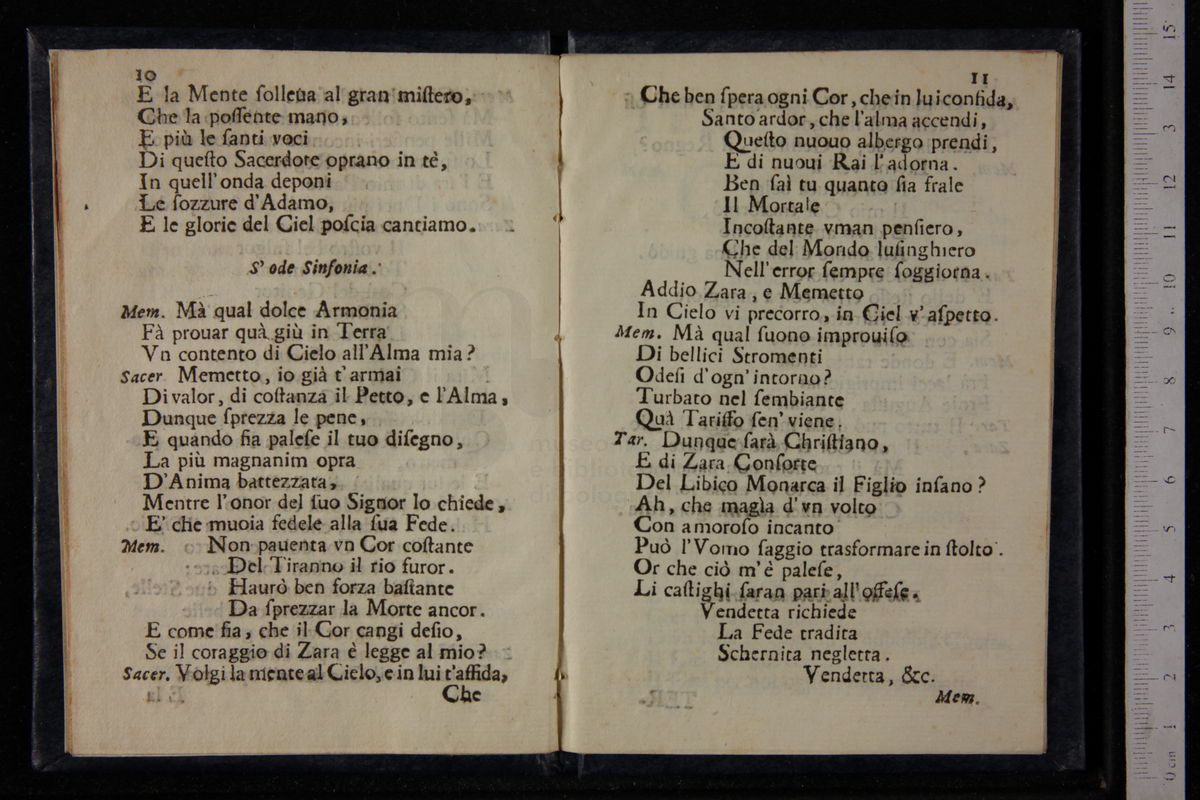 10
E la Mente ſolleùa al gran miſtero,
Che la poſſente mano,
E più le ſanti voci
Di queſto Sacerdote oprano in tè,
In quell'onda deponi
Le ſozzure d'Adamo,
E le glorie del Ciel poſcia cantiamo.
S' ode Sinfonia.
Mem. Mà qual dolce Armonia
Fà prouar quà giù in Terra
Vn contento di Cielo all'Alma mia?
Sacer Memetto, io già t'armai
Di valor, di coſtanza il Petto, e l'Alma,
Dunque ſprezza le pene,
E quando fia paleſe il tuo diſegno,
La più magnanim opra
D'Anima battezzata,
Mentre l'onor del ſuo Signor lo chiede,
E' che muoia fedele alla ſua Fede.
Mem. Non pauenta vn Cor coſtante
Del Tiranno il rio furor.
Haurò ben forza baſtante
Da ſprezzar la Morte ancor.
E come fia, che il Cor cangi deſio,
Se il coraggio di Zara è legge al mio?
Sacer. Volgi la mente al Cielo, e in lui t'affida,
Che
11
Che ben ſpera ogni Cor, che in lui confida,
Santo ardor, che l'alma accendi,
Queſto nuouo albergo prendi,
E di nuoui Rai l'adorna.
Ben ſai tu quanto ſia frale
Il Mortale
Incoſtante vman penſiero,
Che del Mondo luſinghiero
Nell'error ſempre ſoggiorna.
Addio Zara, e Memetto
In Cielo vi precorro, in Ciel v'aſpetto.
Mem. Mà qual ſuono improuiſo
Di bellici Stromenti
Odeſi d'ogn'intorno?
Turbato nel ſembiante
Quà Tariffo ſen' viene.
Tar. Dunque ſarà Chriſtiano,
E di Zara Conſorte
Del Libico Monarca il Figlio inſano?
Ah, che magìa d'vn volto
Con amoroſo incanto
Può l'Vomo ſaggio trasformare in ſtolto.
Or che ciò m'è paleſe,
Li caſtighi ſaran pari all'offeſe.
Vendetta richiede
La Fede tradita
Schernita negletta.
Vendetta, &c.
Mem.